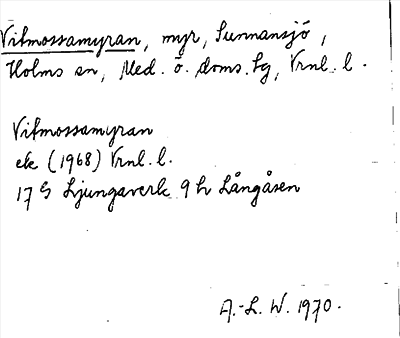 Vitmossamyran, myr, Sunnansjö,
Holms sn, Med. ö. doms. sg, Vrnl. l.
Vitmossamyran
ek (1968) Vrnl. l.
17 G Ljungaverk 9 h Långåsen
A.-L. W. 1970.